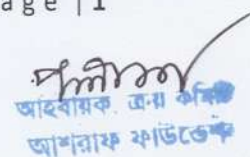 age | 1
আহবায়ক ক্রয় কমিটি
আশরাফ ফাউন্ডেশন